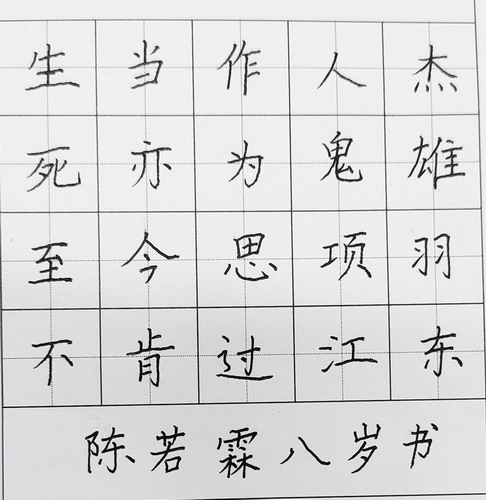 生当作人杰
死亦为鬼雄
至今思项羽
不肯过江东
陈若霖八岁书